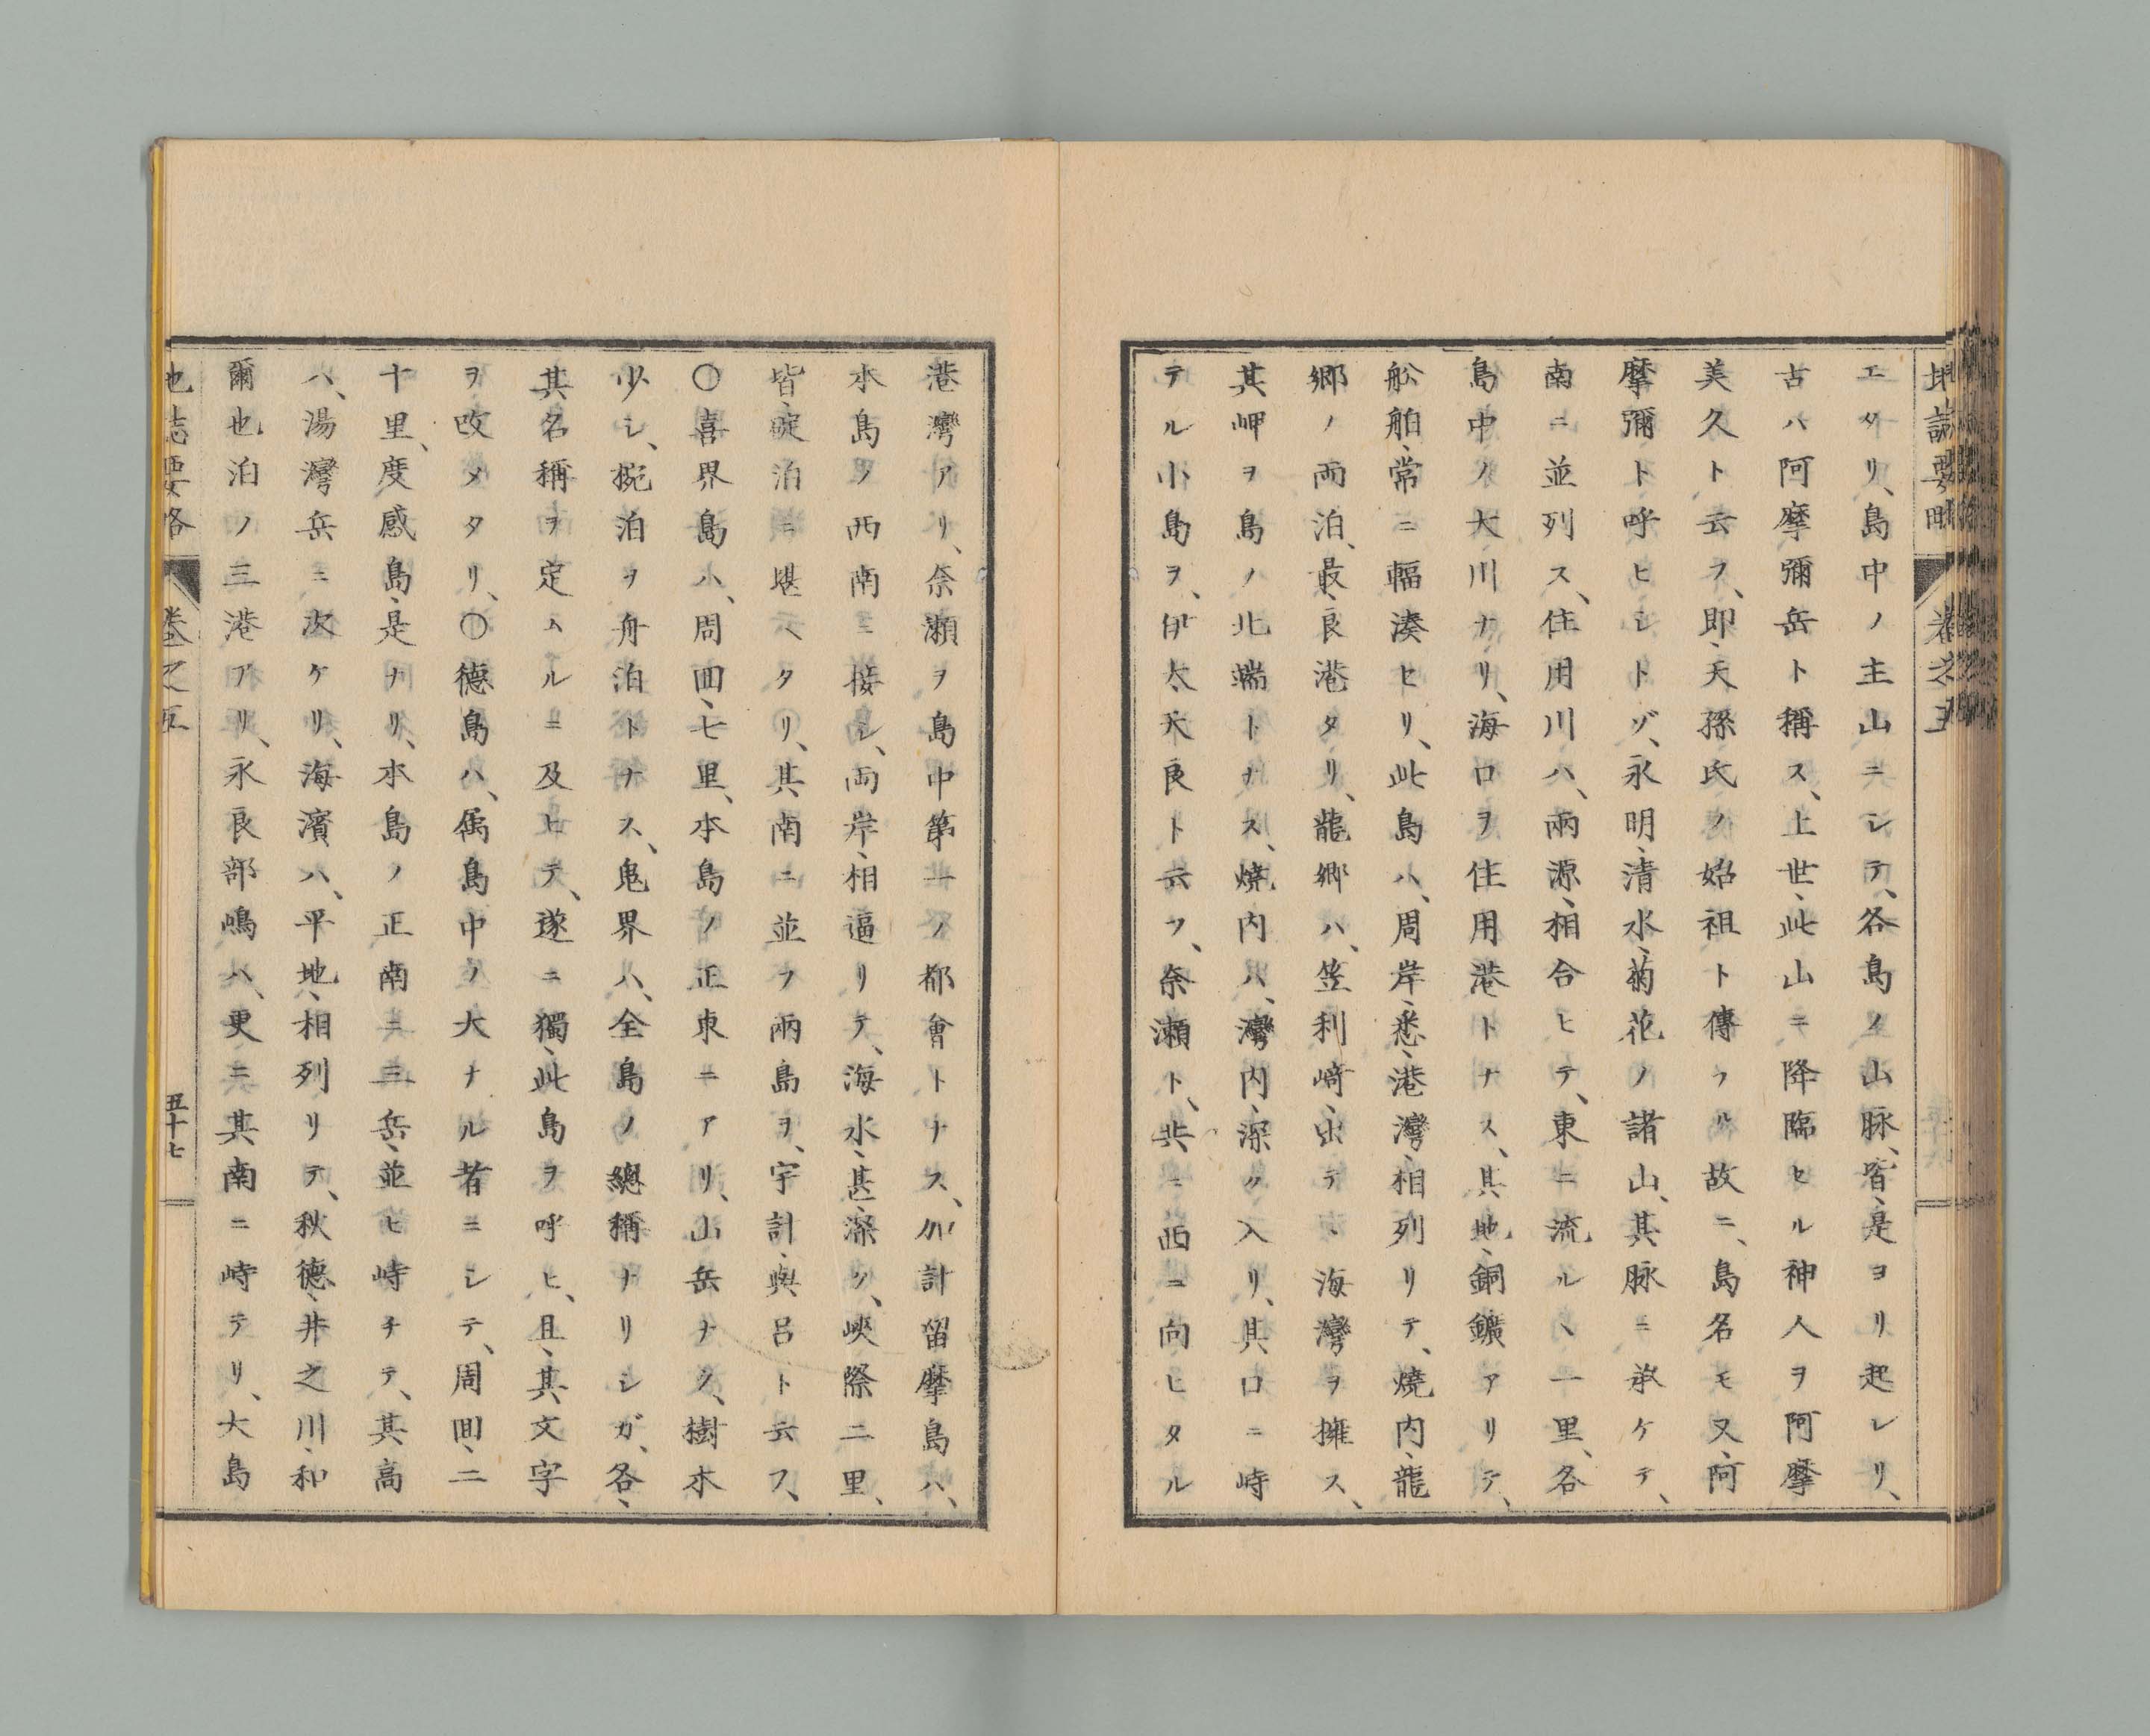 地誌要略 卷之五
エタリ、島中ノ主山ニシテ、各島ノ山脉、皆、是ヨリ起レリ、
古ハ阿摩彌岳ト稱ス、上世、此山ニ降臨ヒル神人ヲ阿摩
美久ト云フ、即、天孫氏ノ始祖ト傳フル故ニ、島名モ又、阿
摩彌ト呼ヒシトゾ、永明、清水、菊花ノ諸山、其脉ニ承ケテ、
南ニ並列ス、住用川ハ、兩源、相合ヒテ、東ニ流ルヽ一里、各
島中ノ大川ナリ、海口ヲ住用港トナス、其地、銅鑛アリテ、
舩舶、常ニ輻湊セリ、此島ハ、周岸、悉、港灣、相列リテ、燒内、龍
郷ノ両泊、最、良港タリ、龍郷ハ、笠利﨑、出テヽ海灣ヲ擁ス、
其岬ヲ島ノ北端トナス、燒内ハ、灣内、深ク入リ、其口ニ峙
テル小島ヲ、伊大、天良ト云フ、奈瀬ト、共ニ西ニ向ヒタル
港灣アリ、奈瀬ヲ島中第一ノ都會トナス、加計留摩島ハ、
本島ノ西南ニ接シ、両岸、相逼リテ、海水、甚、深ク、峽際二里、
皆、碇泊ニ堪ヘタリ、其南ニ並フ兩島ヲ、宇計、與呂ト云フ、
〇喜界島ハ、周囬、七里、本島ノ正東ニアリ、山岳ナク、樹木
少シ、挽泊ヲ舟泊トナス、鬼界ハ、全島ノ總稱ナリシガ、各、
其名稱ヲ定ムルニ及ヒテ、遂ニ獨、此島ヲ呼ヒ、且、其文字
ヲ改メタリ、〇德島ハ、属島中ノ大ナル者ニシテ、周囬、二
十里、度感島、是ナリ、本島ノ正南ニ三岳、並ヒ峙チテ、其高
ハ、湯灣岳ニ次ケリ、海濱ハ、平地、相列リテ、秋德、井之川、和
爾也泊ノ三港アリ、永良部嶋ハ、更ニ其南ニ峙テリ、大島
地誌要略 卷之五 五十七